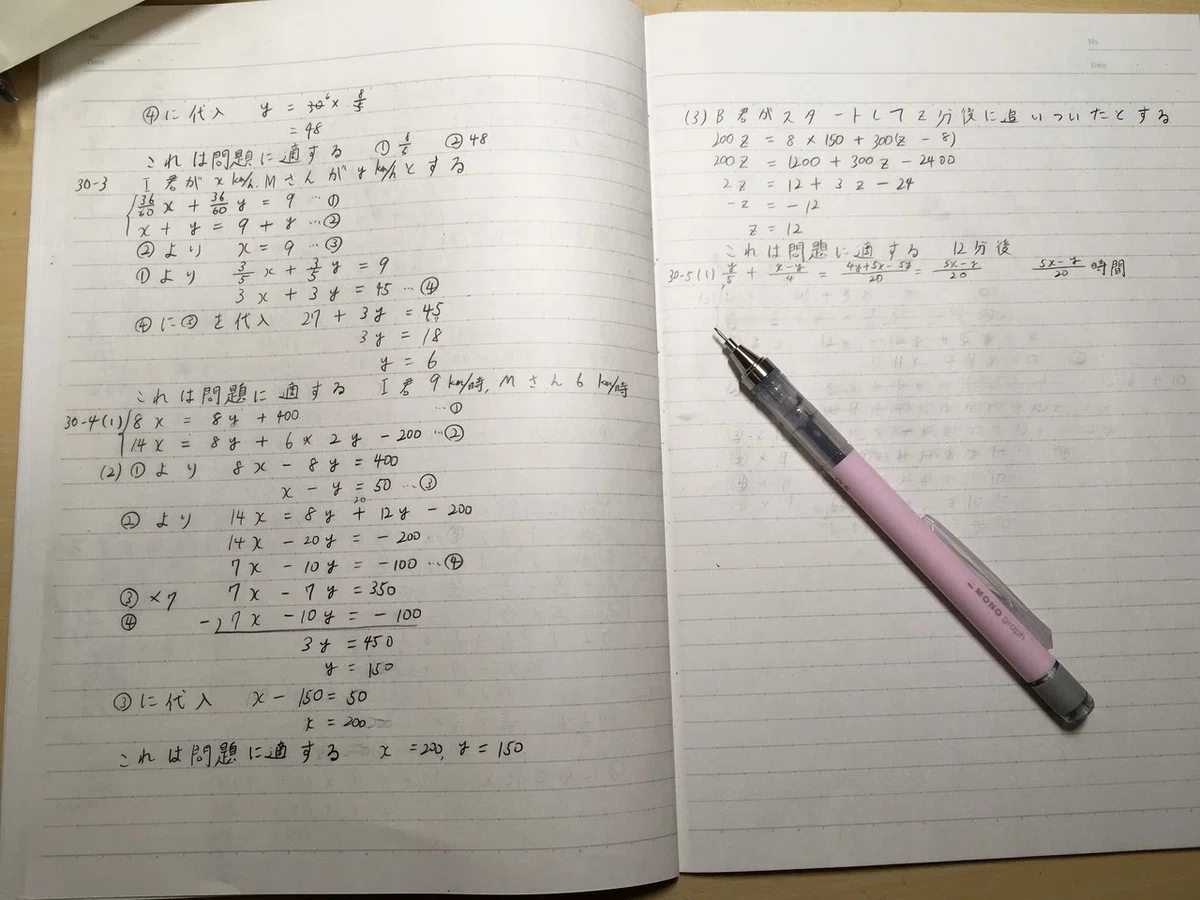 ④に代入 y = 30 6 × 8/5
= 48
これは問題に適する ① 8/5 ② 48
30-3 I君がx km/h, Mさんがy km/hとする
36/60 x + 36/60 y = 9 …①
x + y = 9 + y …②
②より x = 9 …③
①より 3/5 x + 3/5 y = 9
3x + 3y = 45 …④
④に③を代入 27 + 3y = 45
3y = 18
y = 6
これは問題に適する I君 9 km/時, Mさん 6 km/時
30-4(1) 8x = 8y + 400 …①
14x = 8y + 6 × 2y - 200 …②
(2) ①より 8x - 8y = 400
x - y = 50 …③
20
②より 14x = 8y + 12y - 200
14x - 20y = -200
7x - 10y = -100 …④
③×7 7x - 7y = 350
④ -) 7x - 10y = -100
3y = 450
y = 150
③に代入 x - 150 = 50
x = 200
これは問題に適する x = 200, y = 150
No.
Date
(3) B君がスタートしてz分後に追いついたとする
200z = 8 × 150 + 300(z - 8)
200z = 1200 + 300z - 2400
2z = 12 + 3z - 24
-z = -12
z = 12
これは問題に適する 12分後
30-5(1) y/5 + x-y/4 = 4y+5x-5y/20 = 5x-y/20 5x-y/20 時間
MONO graph